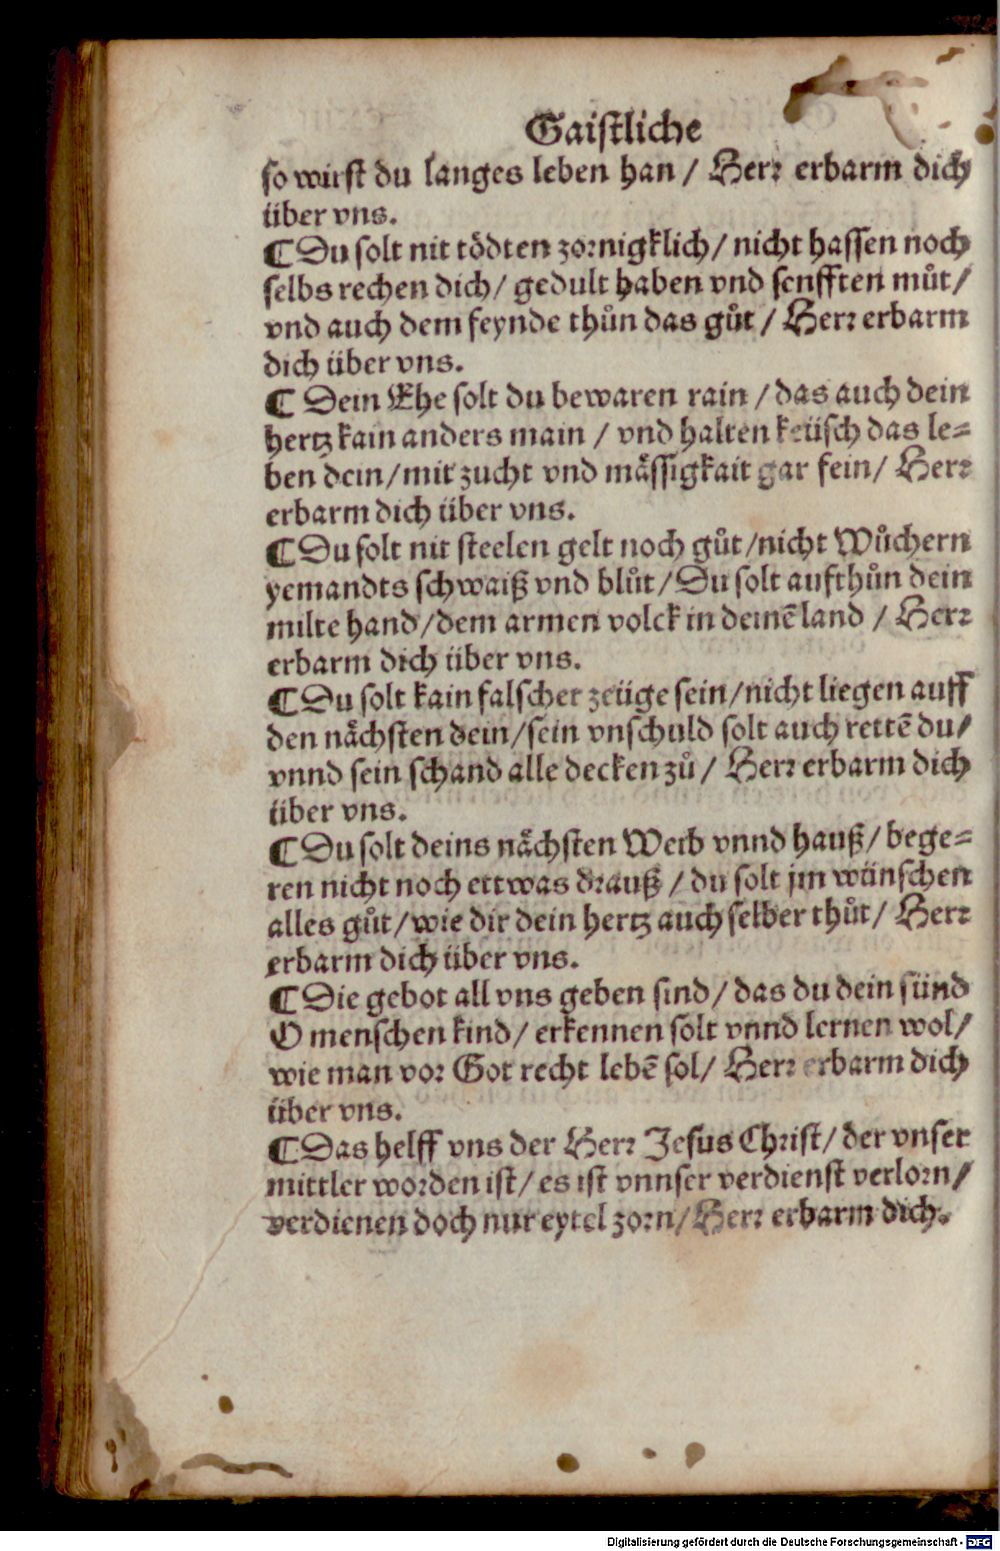 Gaistliche
so wirst du langes leben han / Herr erbarm dich
über vns.
¶ Du solt nit tödten zornigklich / nicht hassen noch
selbs rechen dich / gedult haben vnd senfften můt /
vnd auch dem feynde thůn das gůt / Herr erbarm
dich über vns.
¶ Dein Ehe solt du bewaren rain / das auch dein
hertz kain anders main / vnd halten keüsch das le⸗
ben dein / mit zucht vnd mässigkait gar fein / Herr
erbarm dich über vns.
¶ Du solt nit steelen gelt noch gůt / nicht Wůchern
yemandts schwaiß vnd blůt / Du solt aufthůn dein
milte hand / dem armen volck in deinē land / Herr
erbarm dich über vns.
¶ Du solt kain falscher zeüge sein / nicht liegen auff
den nächsten dein / sein vnschuld solt auch rettē du /
vnnd sein schand alle decken zů / Herr erbarm dich
über vns.
¶ Du solt deins nächsten Weib vnnd hauß / bege⸗
ren nicht noch ettwas drauß / du solt jm wünschen
alles gůt / wie dir dein hertz auch selber thůt / Herr
erbarm dich über vns.
¶ Die gebot all vns geben sind / das du dein sünd
O menschen kind / erkennen solt vnnd lernen wol /
wie man vor Got recht lebē sol / Herr erbarm dich
über vns.
¶ Das helff vns der Herr Jesus Christ / der vnser
mittler worden ist / es ist vnnser verdienst verlorn /
verdienen doch nur eytel zorn / Herr erbarm dich.
Digitalisierung gefördert durch die Deutsche Forschungsgemeinschaft - DFG